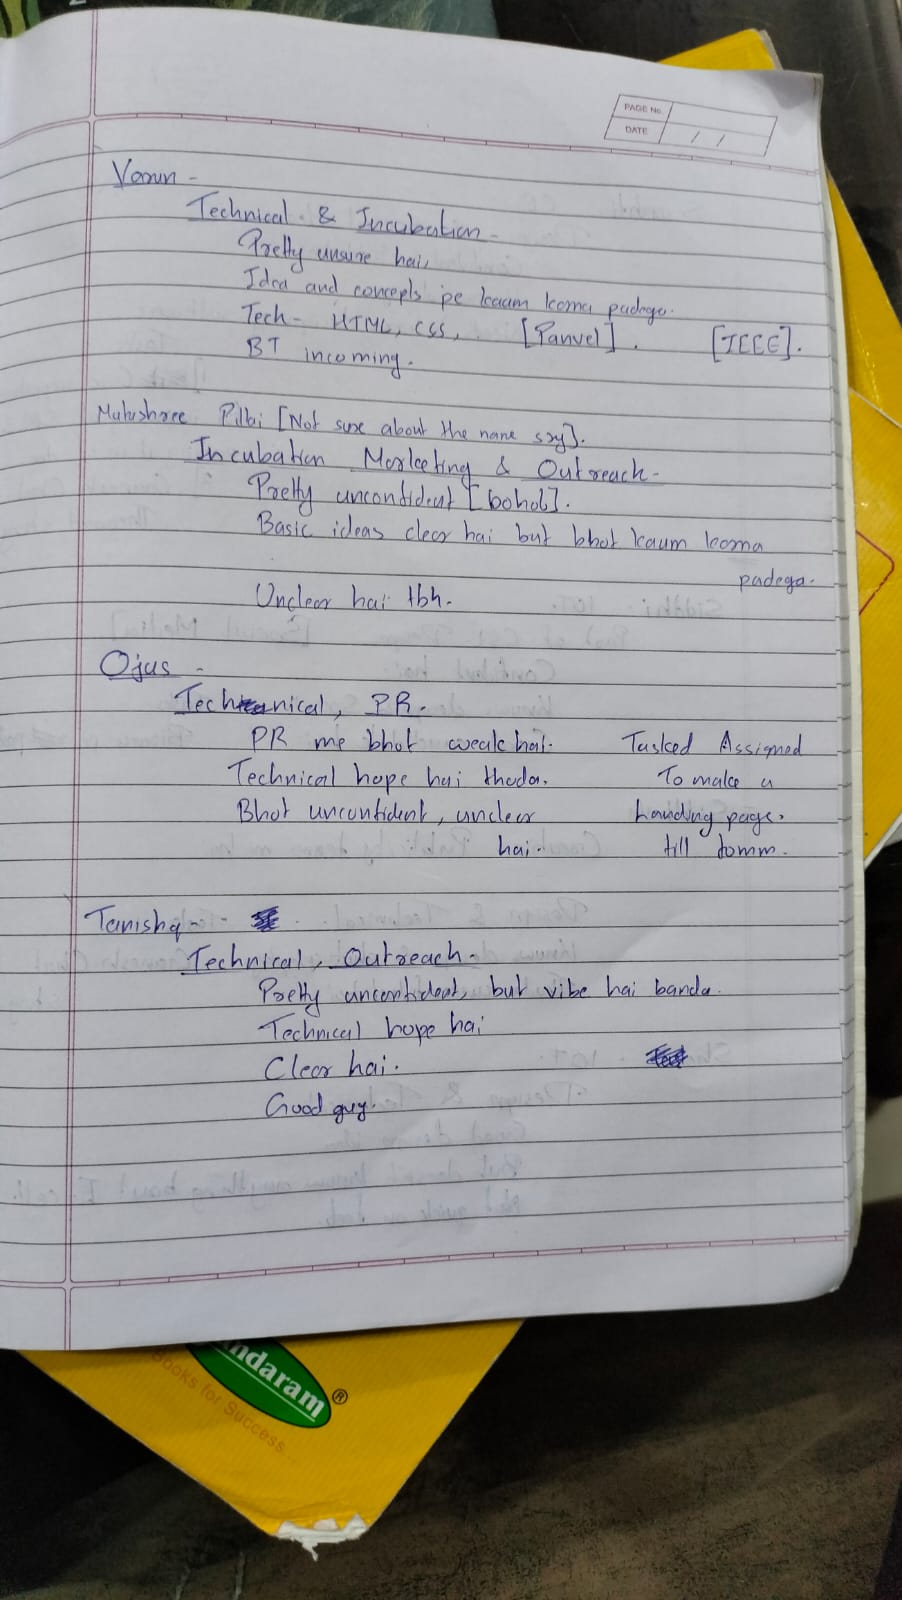 PAGE No.
DATE / /
Varun -
Technical & Incubation -
Pretty unsure hai,
Idea and concepts pe kaam karna padega.
Tech - HTML, CSS, [Panvel]. [IEEE].
BT incoming.
[Not sure about the name sry].
Incubation Marketing & Outreach -
Pretty unconfident [bohot].
Basic ideas clear hai but bhot kaam karna
padega.
Unclear hai tbh.
Ojus -
Technical, PR.
PR me bhot weak hai. Tasked Assigned
Technical hope hai thoda. To make a
Bhot unconfident, unclear Landing page.
hai. till tomm.
Tanishq -
Technical, Outreach -
Pretty unconfident, but vibe hai banda.
Technical hope hai
Clear hai.
Good guy.
ndaram®
Books for Success